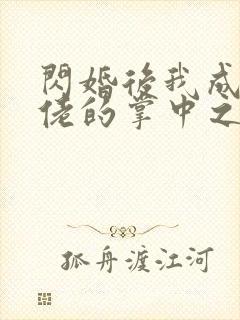 閃婚後我成
佬的掌中之
孤舟渡江河